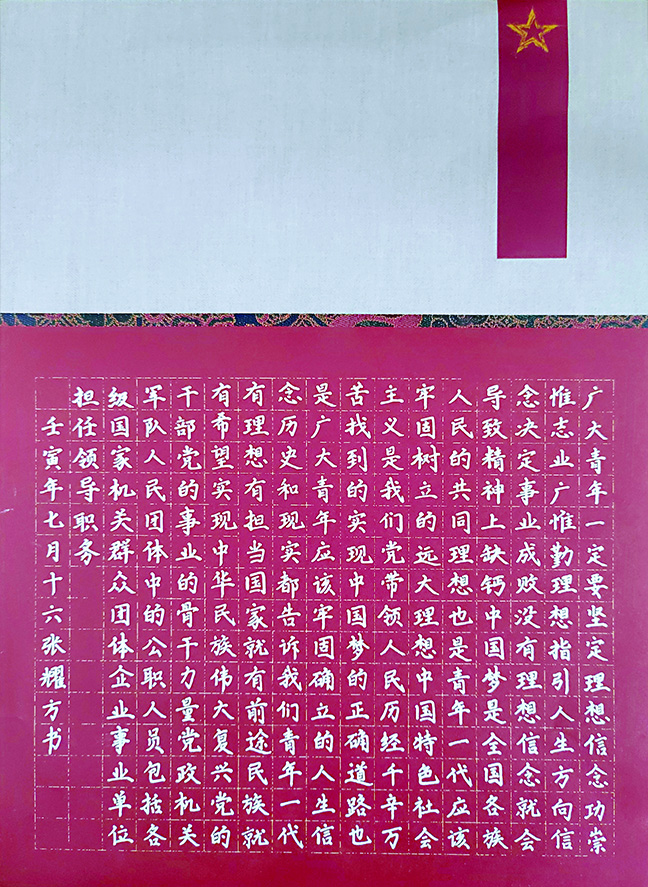 广大青年一定要坚定理想信念功崇
惟志业广惟勤理想指引人生方向信
念决定事业成败没有理想信念就会
导致精神上缺钙中国梦是全国各族
人民的共同理想也是青年一代应该
牢固树立的远大理想中国特色社会
主义是我们党带领人民历经千辛万
苦找到的实现中国梦的正确道路也
是广大青年应该牢固确立的人生信
念历史和现实都告诉我们青年一代
有理想有担当国家就有前途民族就
有希望实现中华民族伟大复兴党的
干部党的事业的骨干力量党政机关
军队人民团体中的公职人员包括各
级国家机关群众团体企业事业单位
担任领导职务
壬寅年七月十六张耀方书